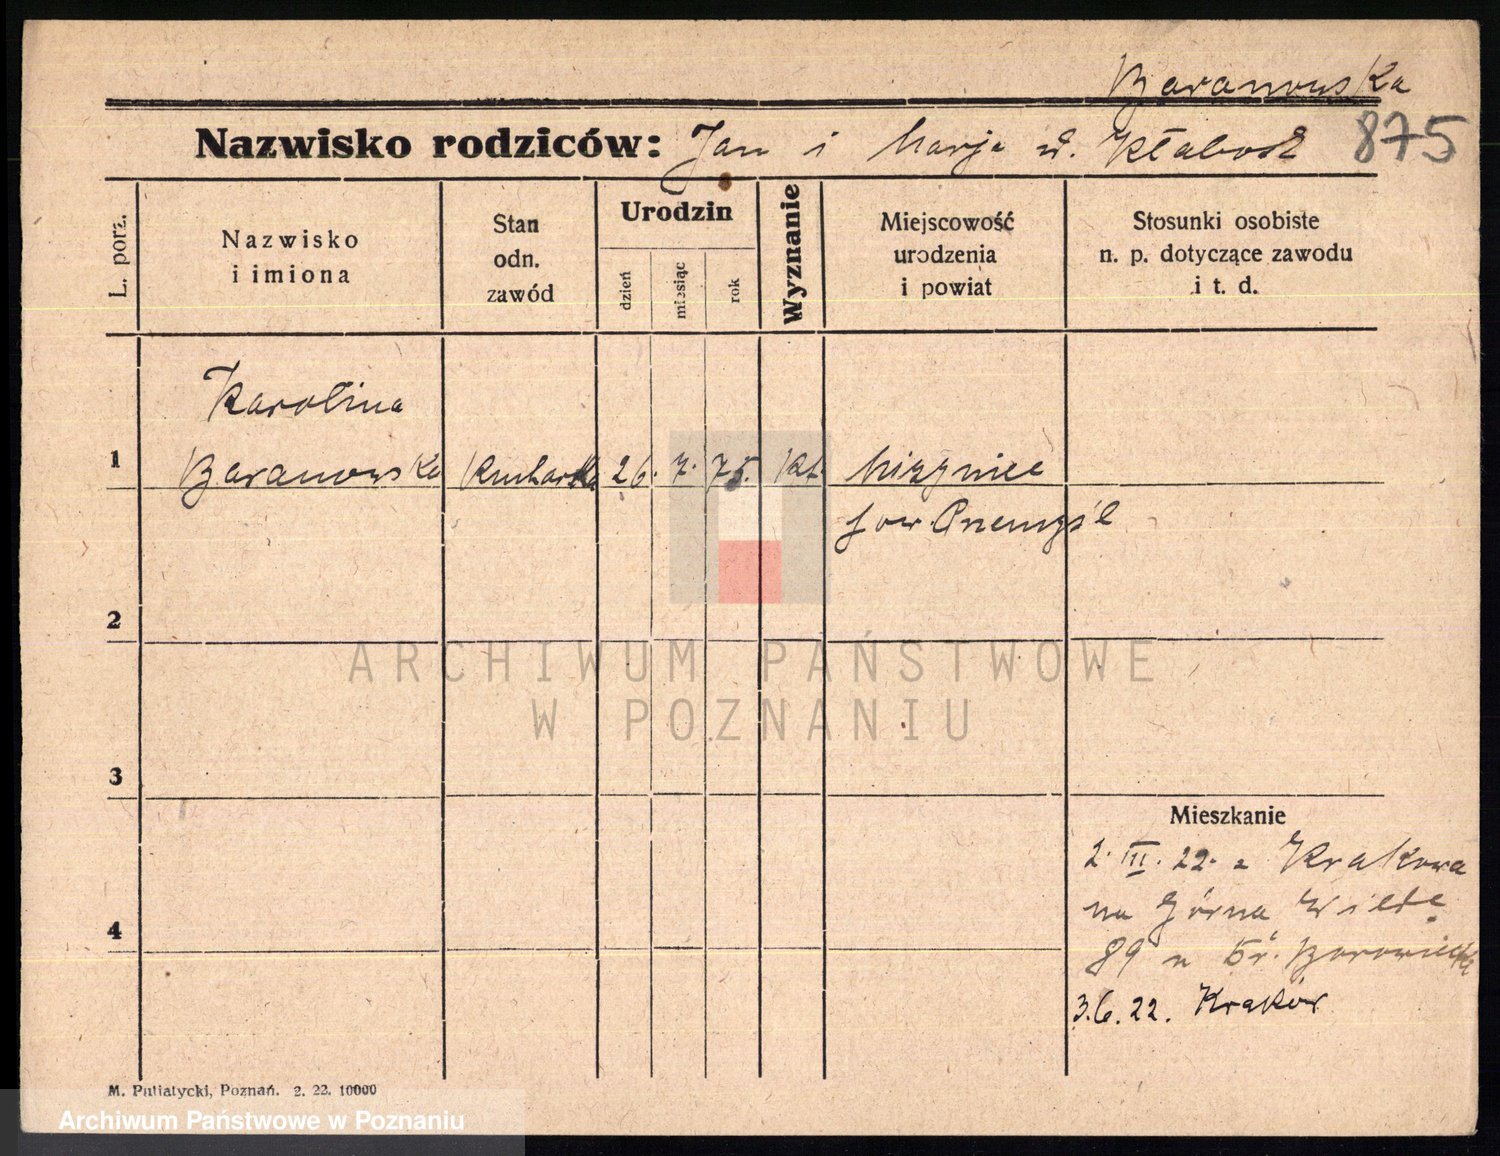 Baranowska
Nazwisko rodziców: Jan i Marja u. Kłabost 875
L. porz.
Nazwisko
i imiona
Stan
odn.
zawód
Urodzin
dzień
miesiąc
rok
Wyznanie
Miejscowość
urodzenia
i powiat
Stosunki osobiste
n. p. dotyczące zawodu
i t. d.
Karolina
1 Baranowska Kucharka 26. 7. 75. Kt.
pow. Przemyśl
2
ARCHIWUM PAŃSTWOWE
W POZNANIU
3
Mieszkanie
2. III. 22. z Krakowa
na Górna Wilda
4
89 u Dr. Borowiecka
3.6.22. Kraków
M. Putiatycki, Poznań. 2. 22. 10000
Archiwum Państwowe w Poznaniu